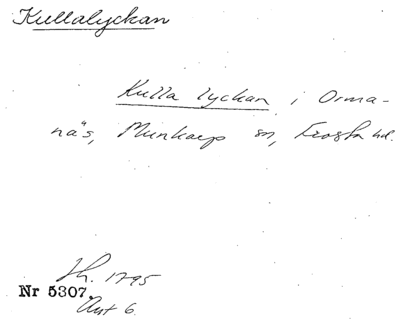 Kullalyckan
Kulla lyckan i Orma-
näs, Munkarp sn, Frosta hd.
Sk. 1795
Nr 5307.
Akt 6.